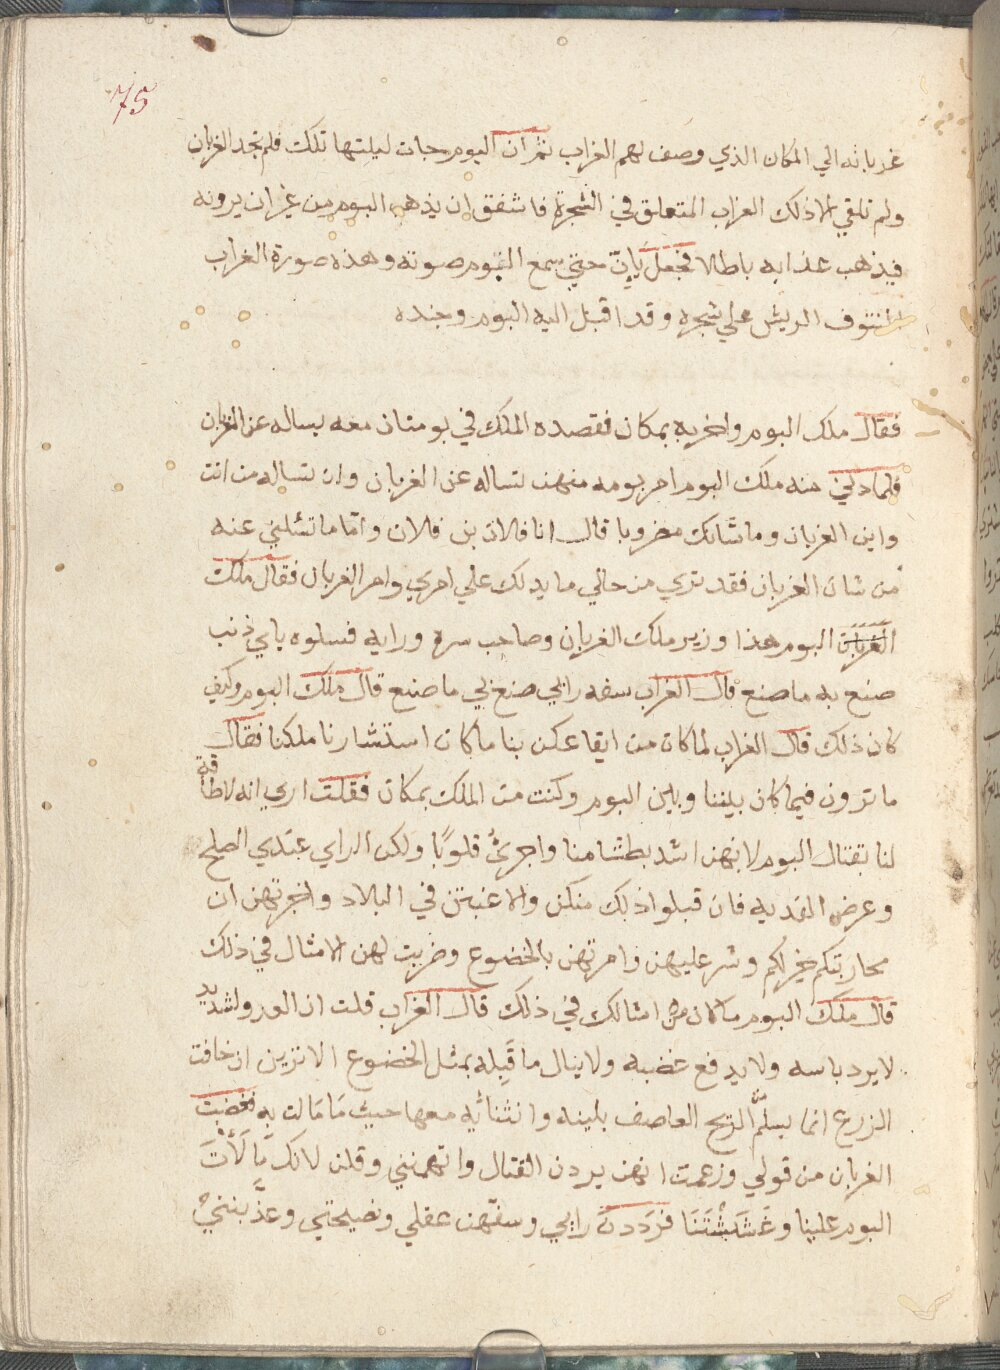 75
غربانه الي المكان الذي وصف لهم الغراب ثم ان البوم جات ليلتها تلك فلم تجد الغربان
ولم تلقي الا ذلك الغراب المتعلق في الشجرة فاشفق ان يذهب البوم من غير ان يرونه
فيذهب عذابه باطلا فجعل يإنّ حتي سمع البوم صوته وهذه صورة الغراب
المنتوف الريش علي شجره وقد اقبل اليه البوم وجنده
فقال ملك البوم واخريه بمكان فقصده الملك في بومتان معه يساله عن الغربان
فلما دني منه ملك البوم امر بومه منهن تساله عن الغربان وان تساله من انت
واين الغربان وما شانك مضروبا قال انا فلان بن فلان واما ما تسئلني عنه
من شان الغربان فقد تري من حالي ما يدلك علي امري وامر الغربان فقال ملك
الغربان البوم هذا وزير ملك الغربان وصاحب سره ورايه فسلوه باي ذنب
صنع به ما صنع قال الغراب سفه رايي صنع بي ما صنع قال ملك البوم وكيف
كان ذلك قال الغراب لما كان من ايقاعكن بنا ما كان استشارنا ملكنا فقال
ما ترون فيما كان بيننا وبين البوم وكنت من الملك بمكان فقلت اري انه لا طاقة
لنا بقتال البوم لانهن اشد بطشا منا واجرئ قلوبًا ولكن الراي عندي الصلح
وعرض الفديه فان قبلوا ذلك منكن والا غبتن في البلاد واخبرتهن ان
محاربتكم خير لكم وشر عليهن وامرتهن بالخضوع وضربت لهن الامثال في ذلك
قال ملك البوم ما كان من امثالك في ذلك قال الغراب قلت ان العدو الشديد
لا يرد باسه ولا يدفع غضبه ولا ينال ما قبله بمثل الخضوع الا ترين ان خافت
الزرع انما يسلم الريح العاصف بلينه وانثنائه معها حيث مَا مَالت به فغضبت
الغربان من قولي وزعمت انهن يردن القتال واتهمنني وقلن لانك مَالَأْتَ
البوم علينا وغَشَشْتَنَا فرَددنَ رايي وسفّهن عقلي ونصيحتي وعذَّبنني